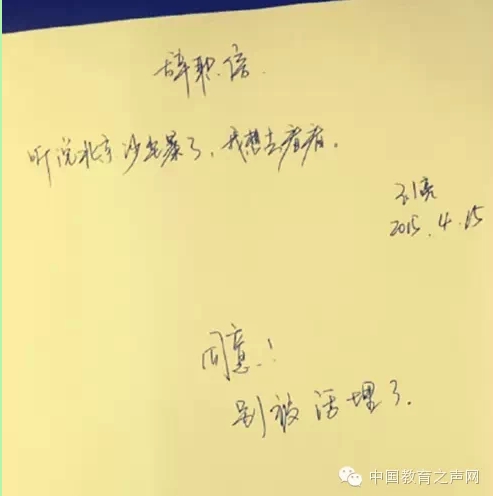 辞职信
听说北京沙尘暴了，我想去看看。
2015.4.15
同意！
别被活埋了.
中国教育之声网